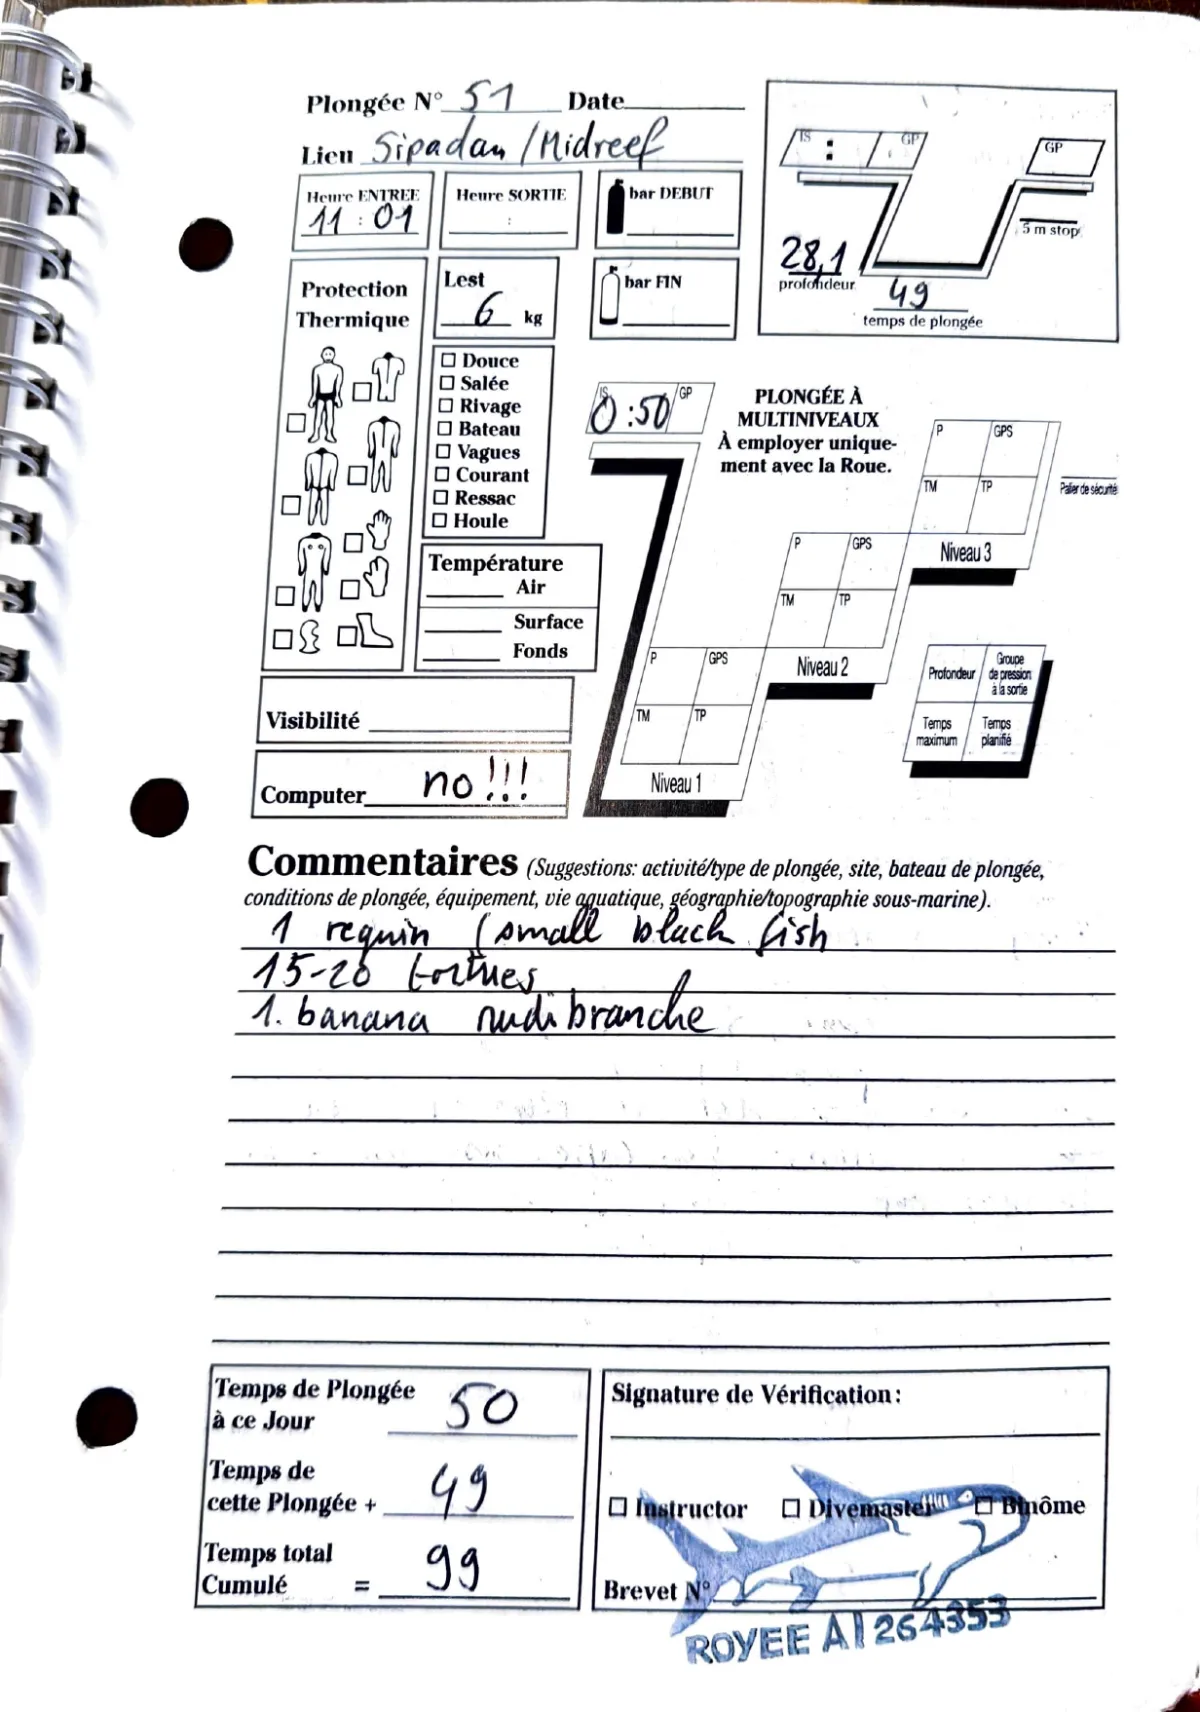 Plongée N° 51 Date
Lieu Sipadan / Midreef
Heure ENTREE
11 : 01
Heure SORTIE
:
bar DEBUT
bar FIN
Protection
Thermique
Lest
6 kg
Douce
Salée
Rivage
Bateau
Vagues
Courant
Ressac
Houle
Température
Air
Surface
Fonds
Visibilité
Computer no!!!
IS : GP
GP
5 m stop
28,1
profondeur
49
temps de plongée
IS 0:50 GP
PLONGÉE À
MULTINIVEAUX
À employer unique-
ment avec la Roue.
P GPS
TM TP
Niveau 1
P GPS
TM TP
Niveau 2
P GPS
TM TP
Niveau 3
Palier de sécurité
Profondeur
Groupe
de pression
à la sortie
Temps
maximum
Temps
planifié
Commentaires (Suggestions: activité/type de plongée, site, bateau de plongée,
conditions de plongée, équipement, vie aquatique, géographie/topographie sous-marine).
1 requin (small black fish
15-20 tortues
1. banana nudibranche
Temps de Plongée
à ce Jour 50
Temps de
cette Plongée + 49
Temps total
Cumulé = 99
Signature de Vérification:
Instructor Divemaster Binôme
Brevet N°
ROYEE AI 264353